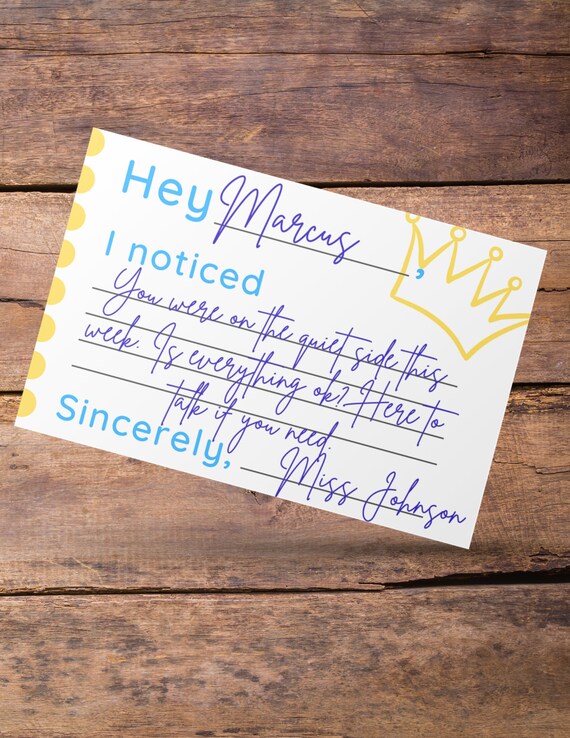 Hey Marcus,
I noticed
You were on the quiet side this
week. Is everything ok? Here to
talk if you need.
Sincerely, Miss Johnson